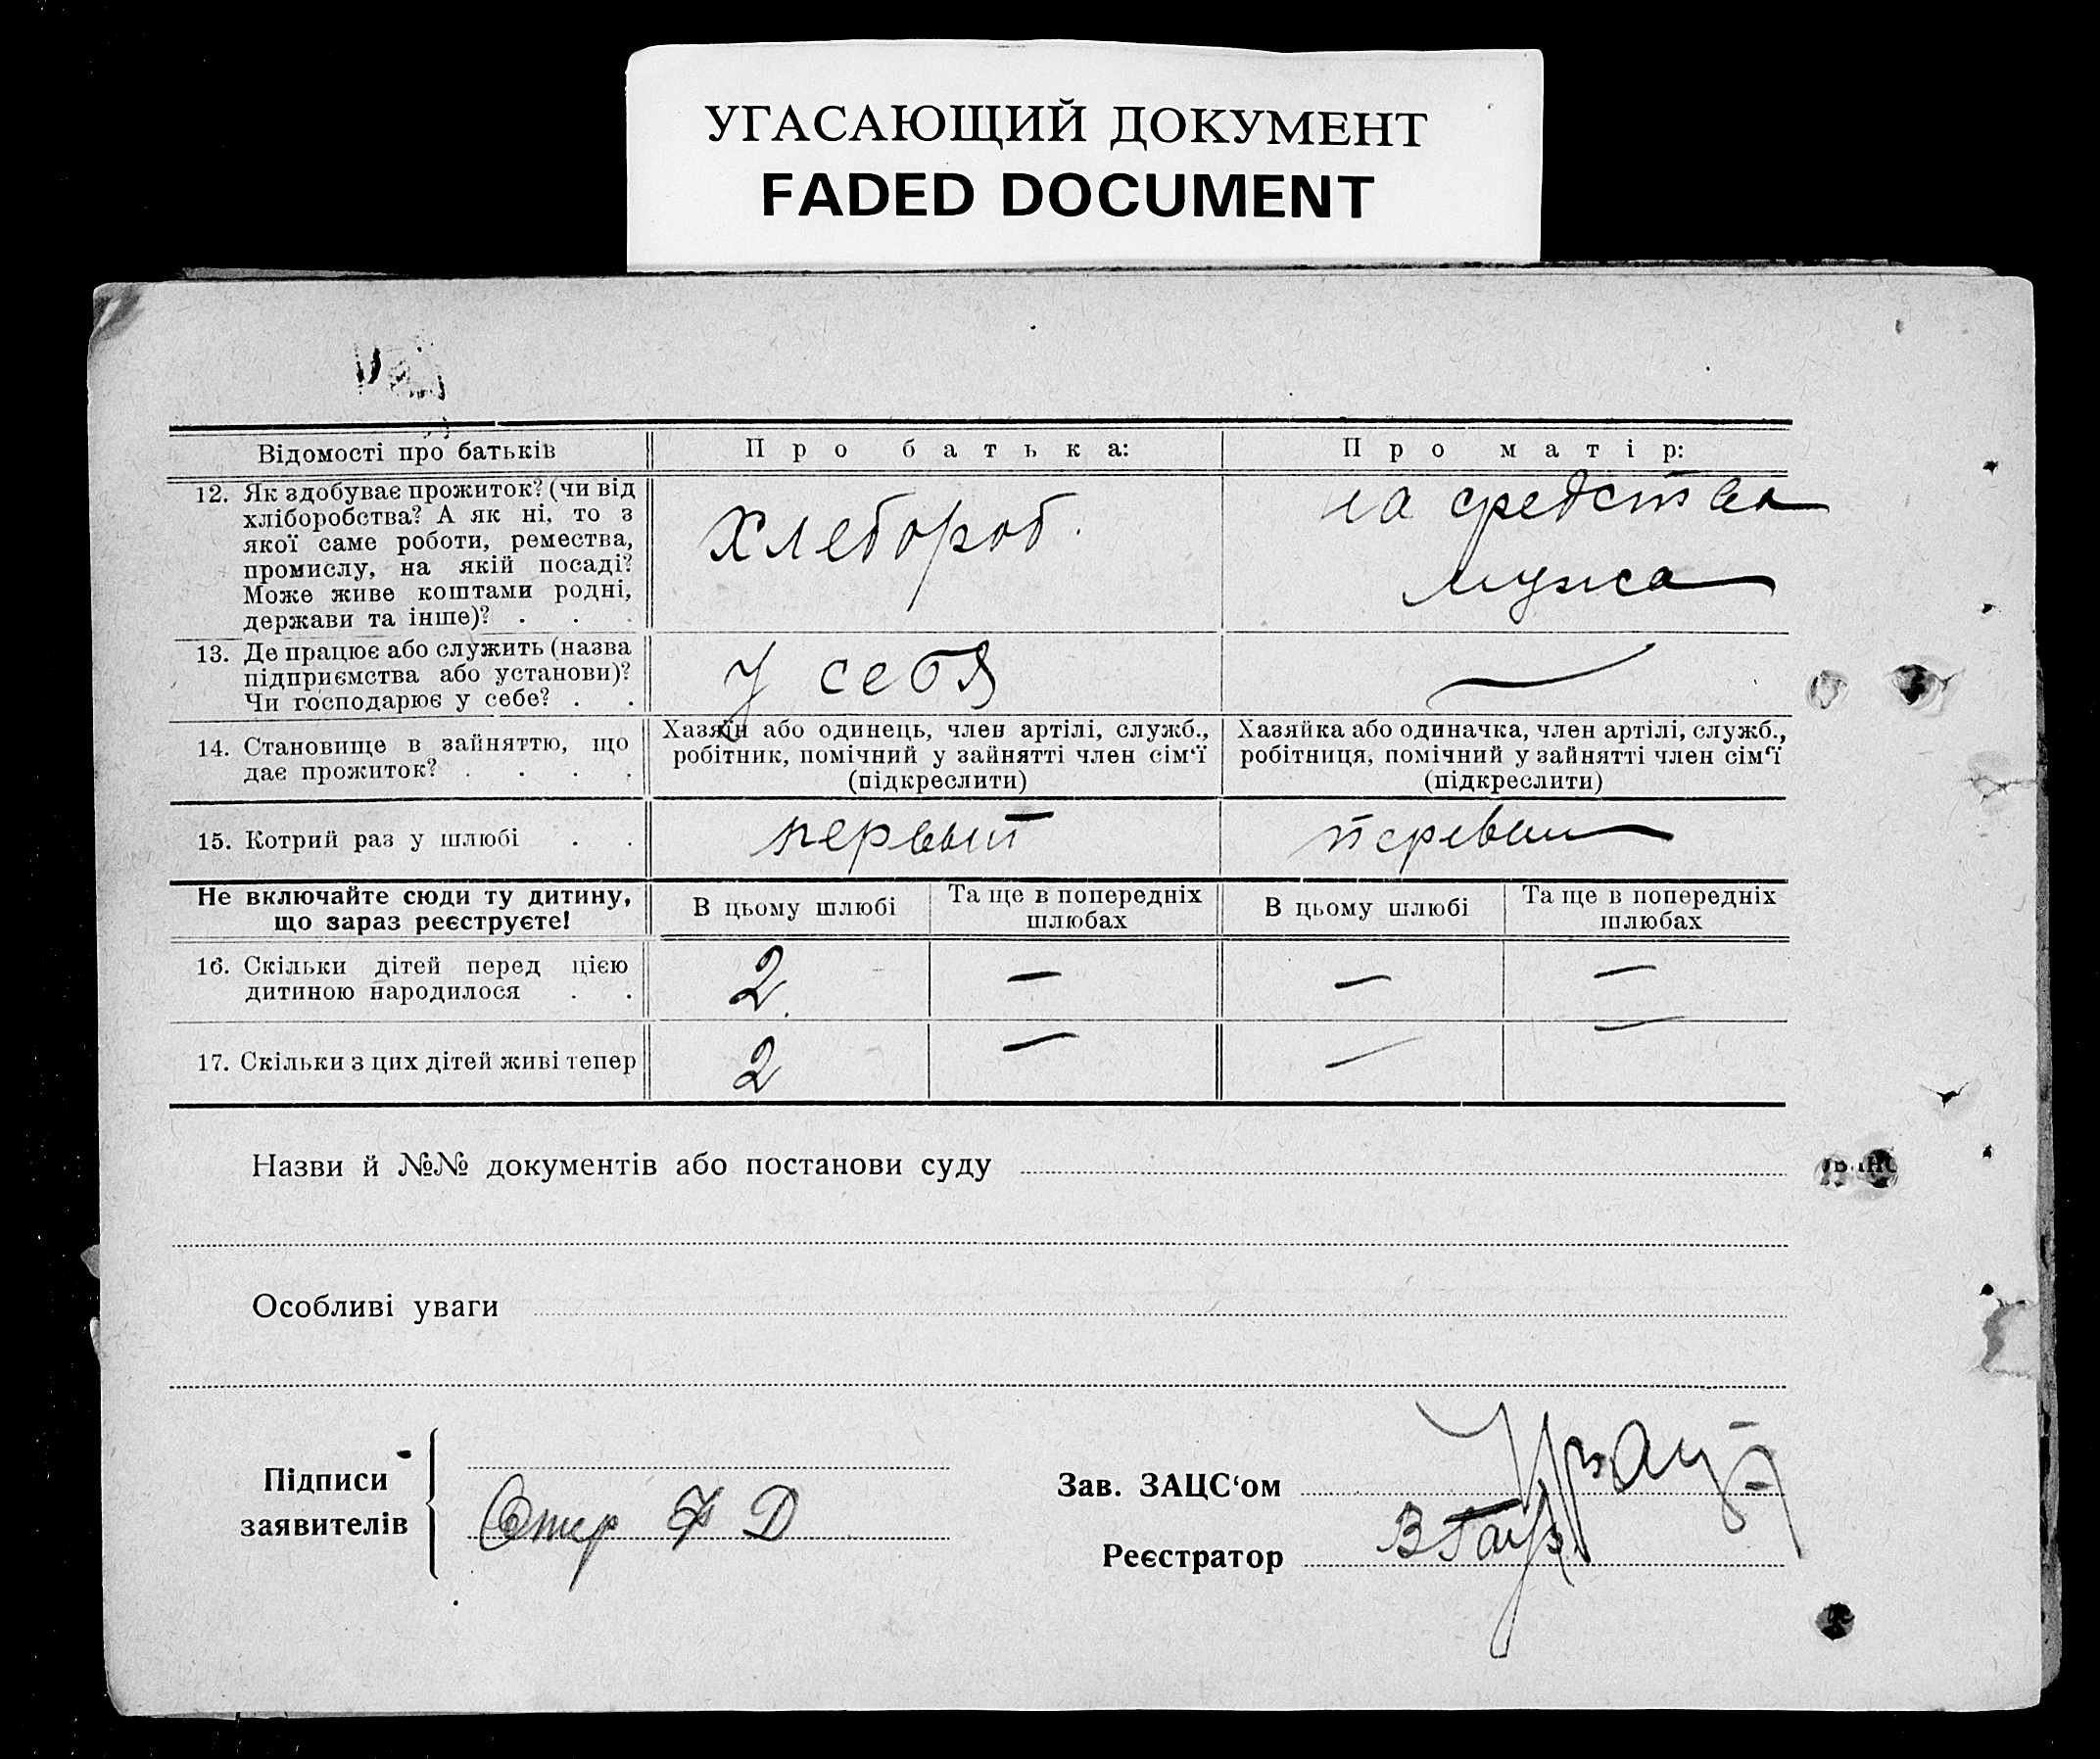 УГАСАЮЩИЙ ДОКУМЕНТ
FADED DOCUMENT
Відомості про батьків
Про батька:
Про матір:
12. Як здобуває прожиток? (чи від
хліборобства? А як ні, то з
якої саме роботи, ремества,
промислу, на якій посаді?
Може живе коштами родні,
держави та інше)? . . .
Хлебороб.
на средства
мужа
13. Де працює або служить (назва
підприємства або установи)?
Чи господарює у себе? . .
У себя
—
14. Становище в зайняттю, що
дає прожиток? . . . .
Хазяїн або одинець, член артілі, служб.,
робітник, помічний у зайнятті член сім‘ї
(підкреслити)
Хазяйка або одиначка, член артілі, служб.,
робітниця, помічний у зайнятті член сім‘ї
(підкреслити)
15. Котрий раз у шлюбі . .
первый
первый
Не включайте сюди ту дитину,
що зараз реєструєте!
В цьому шлюбі
Та ще в попередніх
шлюбах
В цьому шлюбі
Та ще в попередніх
шлюбах
16. Скільки дітей перед цією
дитиною народилося . .
2
—
—
—
17. Скільки з цих дітей живі тепер
2
—
—
—
Назви й №№ документів або постанови суду
Особливі уваги
Підписи
заявителів
Зав. ЗАЦС‘ом
Реєстратор